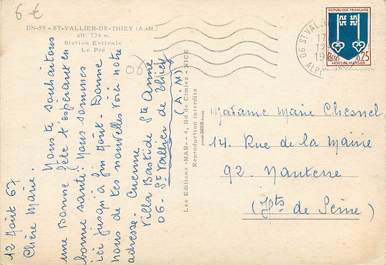 6 €
UN-59 - ST-VALLIER-DE-THIEY (A.-M.)
alt. 724 m.
Station Estivale
Le Pré
12 Août 67
Chère Marie.
Nous te souhaitons
une Bonne fête et espérant en
bonne santé. Nous sommes
ici jusqu'à fin Août. Donne
nous de tes nouvelles voici notre
adresse.
Villa Bastide Ste Anne
06 - St Vallier de Thiey
(A.M)
Les Editions "MAR" - 4, Bd de Cimiez - NICE
Reproduction interdite
RÉPUBLIQUE FRANÇAISE
0,25
MONT-DE-MARSAN
06 ST VAL
Madame Marie Chesnel
14. Rue de la Mairie
92. Nanterre
(Hts de Seine)